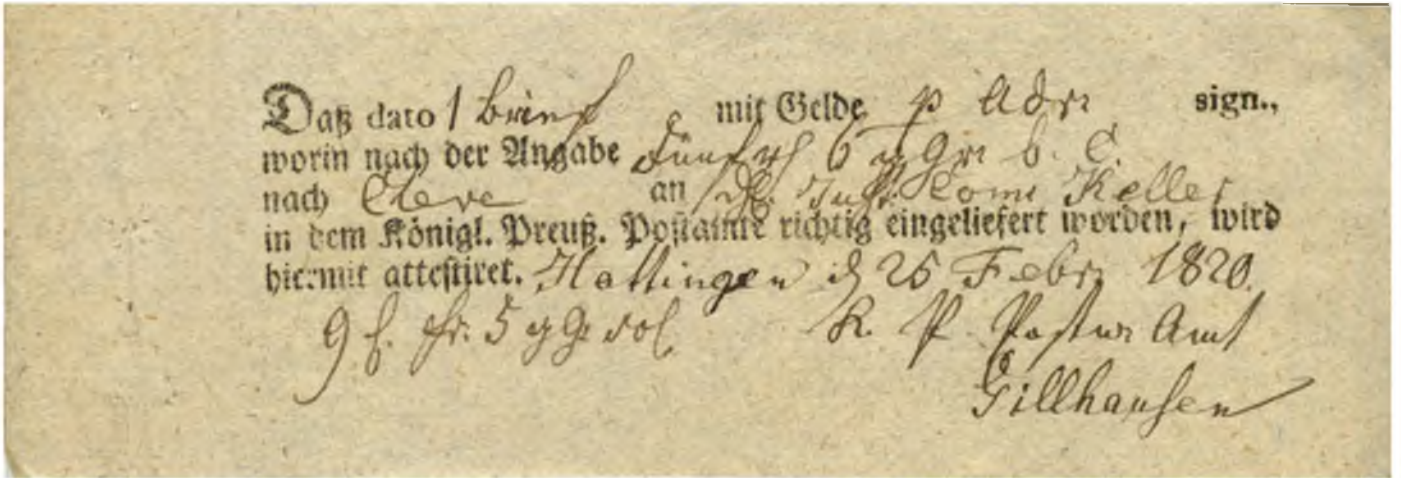 Daß dato 1 Brief mit Gelde p Adr. sign.,
worin nach der Angabe Fünf rh 6 gGr b. C.
nach Cleve an Just. Comi Keller
in dem Königl. Preuß. Postamte richtig eingeliefert worden, wird
hiermit attestiret. Hattingen d 25 Febr 1820.
5 gGr
K. P. Postwr Amt
Gillhausen